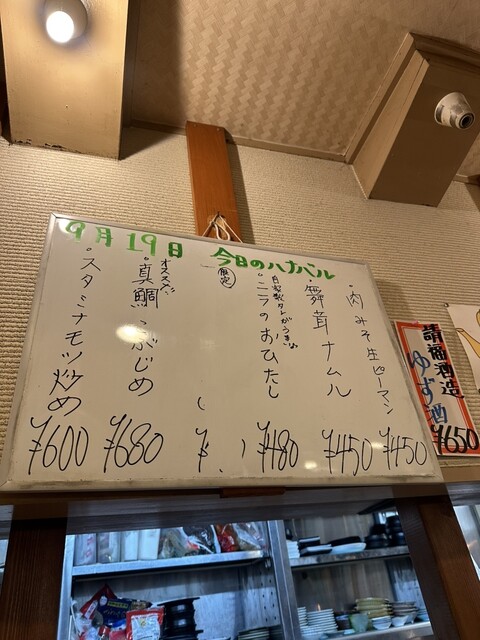 9月19日 今日のハナバル
肉みそ生ピーマン ¥450
舞茸ナムル ¥450
ニラのおひたし ¥480
限定
¥
オススメ!!
真鯛こぶじめ ¥680
スタミナモツ炒め ¥600
請福酒造
ゆず酒
¥650